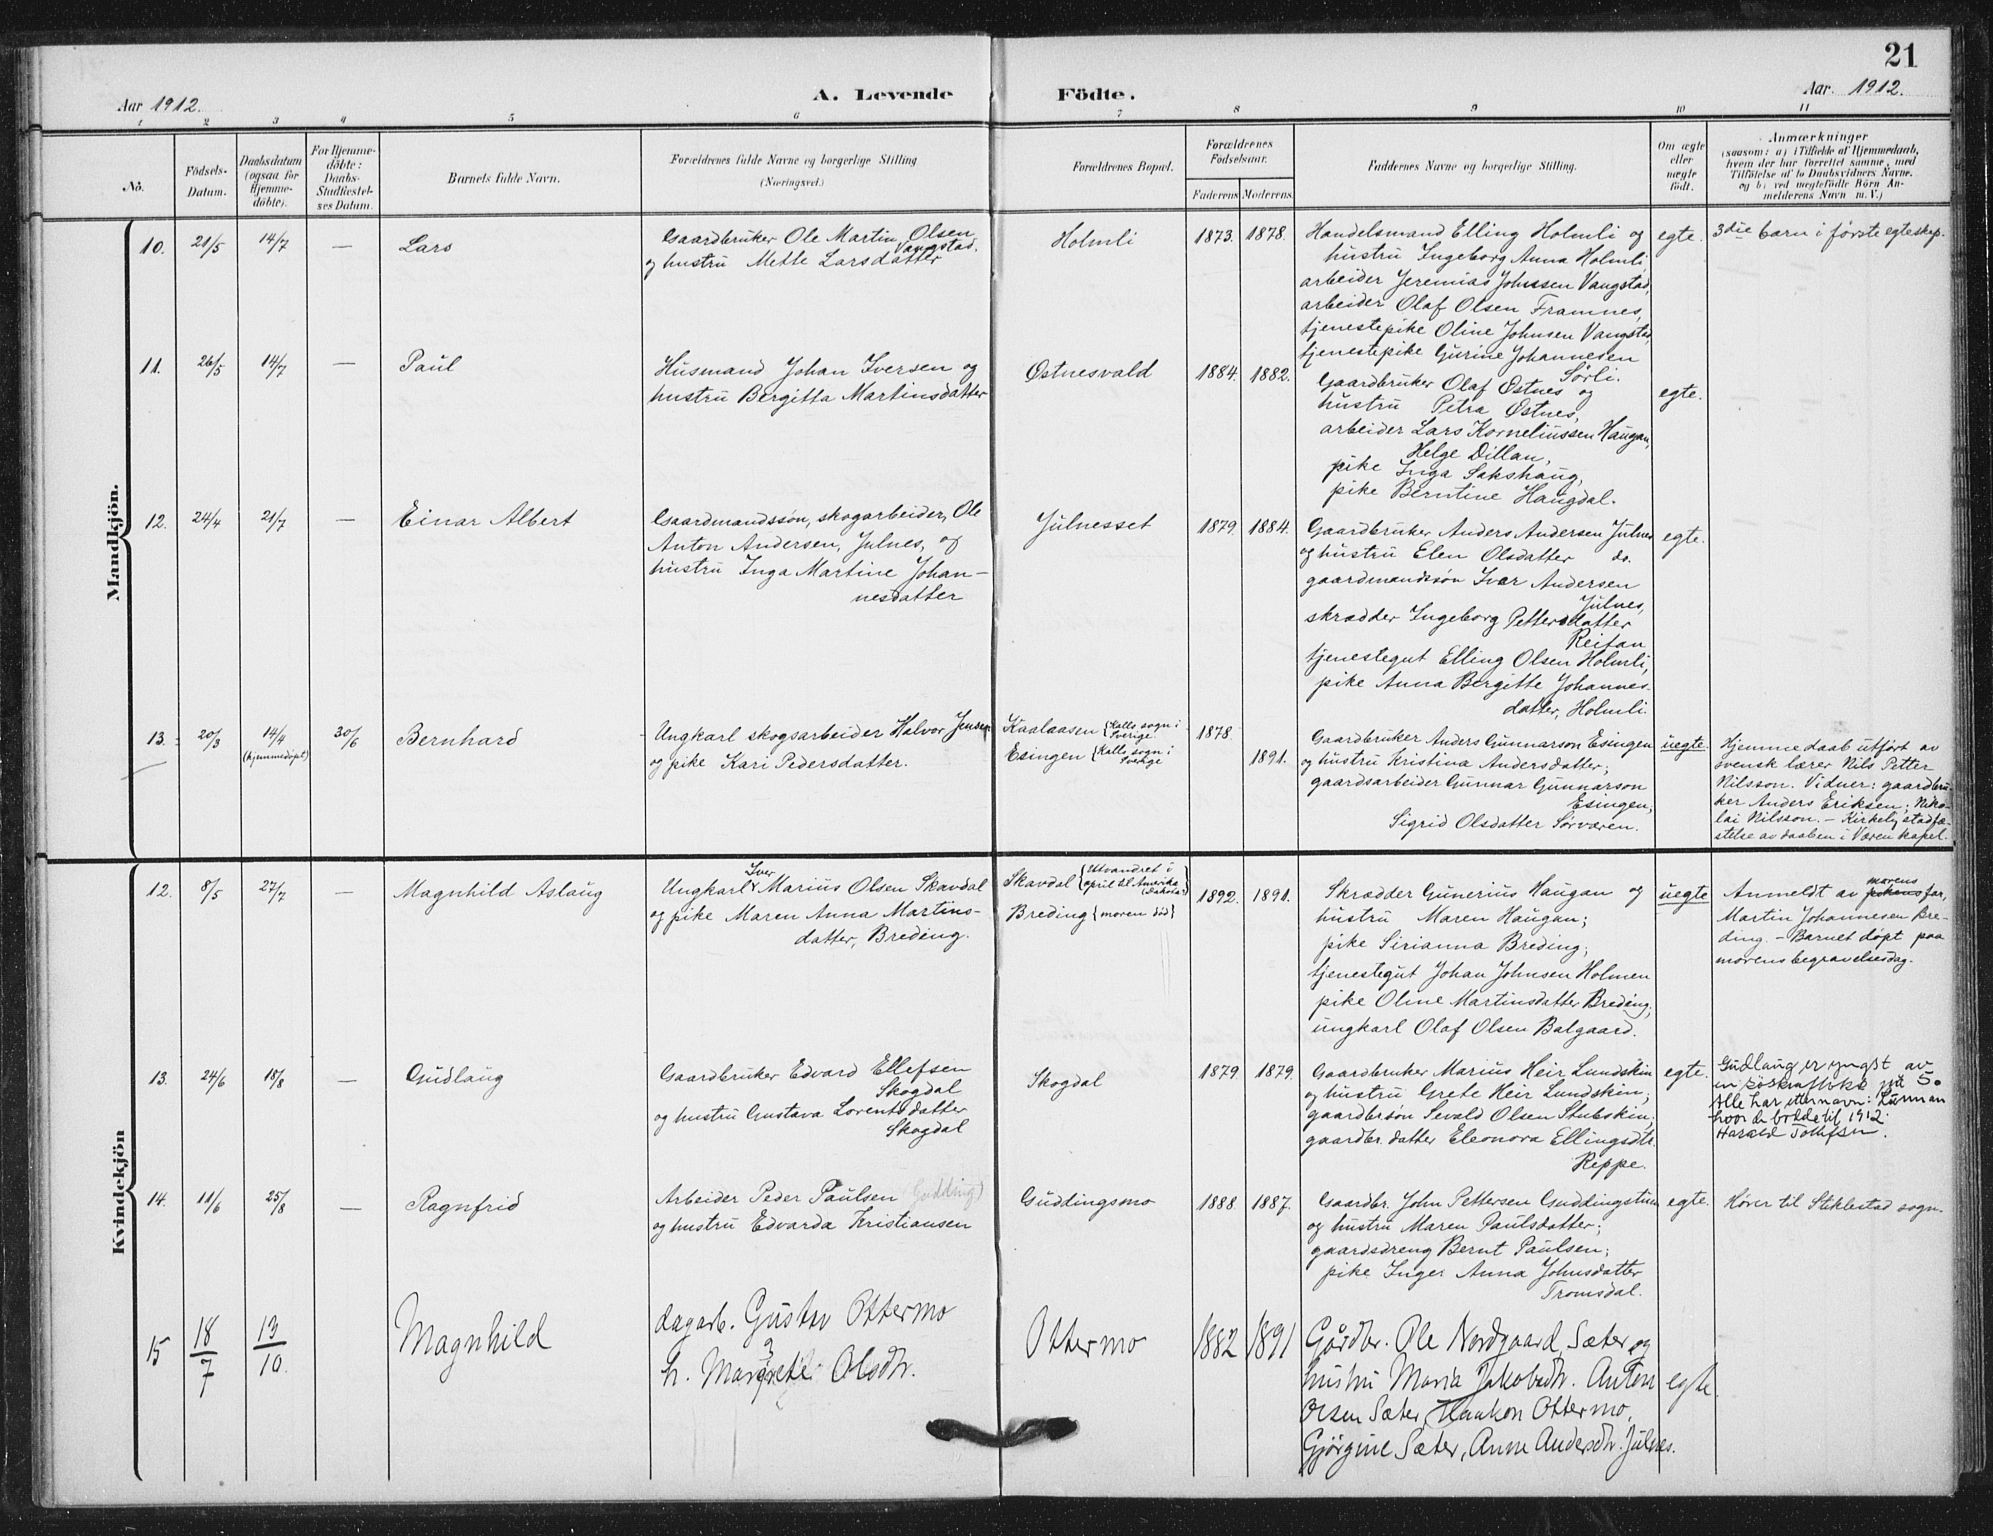 21
Aar 1912.
A. Levende Födte.
Aar 1912.
1 2 3 4 5 6 7 8 9 10 11
No.
Födsels-
Datum.
Daabsdatum
(ogsaa for
Hjemme-
döbte).
For Hjemme-
döbte:
Daabs-
Stadfæstel-
ses Datum.
Barnets fulde Navn.
Forældrenes fulde Navne og borgerlige Stilling
(Næringsvei.)
Forældrenes Bopæl.
Forældrenes
Födselsaar.
Faderens Moderens.
Faddernes Navne og borgerlige Stilling.
Om ægte
eller
uægte
födt.
Anmærkninger
(saasom: a) i Tilfælde af Hjemmedaab,
hvem der har forrettet samme, med
Tilföielse af to Daabsvidners Navne,
og b) ved uægtefödte Börn An-
melderens Navn m. V.)
Mandkjön.
10. 21/5 14/7 — Lars
Gaardbruker Ole Martin Olsen
Vangstad.
og hustru Mette Larsdatter
Holmli
1873. 1878.
Handelsmand Elling Holmli og
hustru Ingeborg Anna Holmli,
arbeider Jeremias Johnsen Vangstad,
arbeider Olaf Olsen Framnes,
tjenestepike Oline Johnsen Vangstad,
tjenestepike Gurine Johannesen
Sørli.
egte. 3die barn i første egteskap.
11. 26/5 14/7 — Paul
Husmand Johan Iversen og
hustru Bergitta Martinsdatter
Østnesvald
1884. 1882.
Gaardbruker Olaf Østnes og
hustru Petra Østnes,
arbeider Lars Korneliussen Haugan,
Helge Dillan,
pike Inga Sakshaug,
pike Berntine Haugdal.
egte.
12. 24/4 21/7 — Einar Albert
Gaardmandssøn, skogarbeider, Ole
Anton Andersen, Julnes, og
hustru Inga Martine Johan-
nesdatter
Julnesset
1879. 1884.
Gaardbruker Anders Andersen Julnes
og hustru Elen Olsdatter do.
gaardmandssøn Ivar Andersen
Julnes,
skrædder Ingeborg Pettersdatter
Reitan
tjenestegut Elling Olsen Holmli,
pike Anna Bergitte Johannes-
datter, Holmli.
egte.
13. 20/3 14/4 (hjemmedøpt) 30/6 Bernhard
Ungkarl skogsarbeider Halvor Jensen
og pike Kari Pedersdatter.
Kaalaasen {Kalls sogn i
Sverige
Esingen {Kalls sogn i
Sverige
1878.
1891.
Gaardbruker Anders Gunnarson Esingen
og hustru Kristina Andersdatter;
gaardsarbeider Gunnar Gunnarson
Esingen;
Sigrid Olsdatter Sørværen.
uegte.
Hjemmedaab utført av
svensk lærer Nils Petter
Nilsson. Vidner: gaardbru-
ker Anders Eriksen; Niko-
lai Nilsson. – Kirkelig stadfæ-
stelse av daaben i Væren kapel.
Kvindekjön
12. 8/5 27/7 — Magnhild Aslaug
Iver
Ungkarl Marius Olsen Skavdal
og pike Maren Anna Martins-
datter, Breding.
Skavdal {Utvandret i
april til Amerika
(Dakota)}
Breding {moren död}
1892. 1891.
Skrædder Gunerius Haugan og
hustru Maren Haugan;
pike Sirianna Breding;
tjenestegut Johan Johnsen Holmen
pike Oline Martinsdatter Breding;
ungkarl Olaf Olsen Balgaard.
uegte
morens
Anmeldt av pikens far,
Martin Johannesen Bre-
ding. – Barnet døpt paa
morens begravelsesdag.
13. 24/6 18/8 — Gudlaug
Gaardbruker Edvard Ellefsen
Skogdal
og hustru Gustava Lorentsdatter
Skogdal
Skogdal
1879. 1879.
Gaardbruker Marius Heir Lundskin
og hustru Grete Heir Lundskin;
gaardbrsøn Sevald Olsen Stubskin;
gaardbr.datter Eleonora Ellingsdtr.
Reppe.
egte.
Gudlaug er yngst av
en søskenflokk på 5.
Alle har etternavn: Lunnan
hvor de bodde til 1912.
Harald Tollefsen.
14. 11/6 25/8 — Ragnfrid
Arbeider Peder Paulsen (Gudding)
og hustru Edvarda Kristiansen
Guddingsmo
1888. 1887.
Gaardbr. John Pettersen Guddingstun
og hustru Maren Paulsdatter;
gaardsdreng Bernt Paulsen;
pike Inger Anna Johnsdatter
Tromsdal.
egte. Hører til Stiklestad sogn.
15 18/7 13/10. Magnhild
dagarb. Gustav Ottermo
h. Margrete Olsdtr.
Ottermo
1882 1891
Gårdbr. Ole Nordgaard Sæter og
hustru Maria Jakobsdtr. Anton
Olsen Sæter, Haakon Ottermo,
Gjørgine Sæter, Anne Andersdtr. Julnes.
egte.